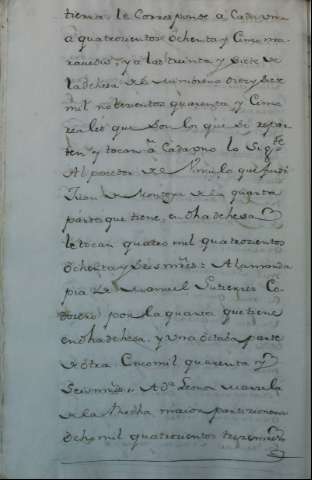 tierra le Corresponde a Cada una
a quatrocientos ochenta y Cinco ma
ravedis, y a las treinta y siete de
la dehesa de diez y seis
mil novecientos quarenta y Cinco
reales que son los que se repar
ten y tocan a Cada uno lo Sigte
Al poseedor de el que fundó
Juan de Montoya de la quarta
parte que tiene, en dha dehesa
le tocan quatro mil quatrocientos
ochenta y seis mrs: A la memoria
pia de Manuel Gutierrez Co
por la quarta que tiene
en dha dehesa, y una octaba parte
de otra Cinco mil quarenta y
Seis mrs: A Da Maria
de la mayor
ocho mil quatrocientos